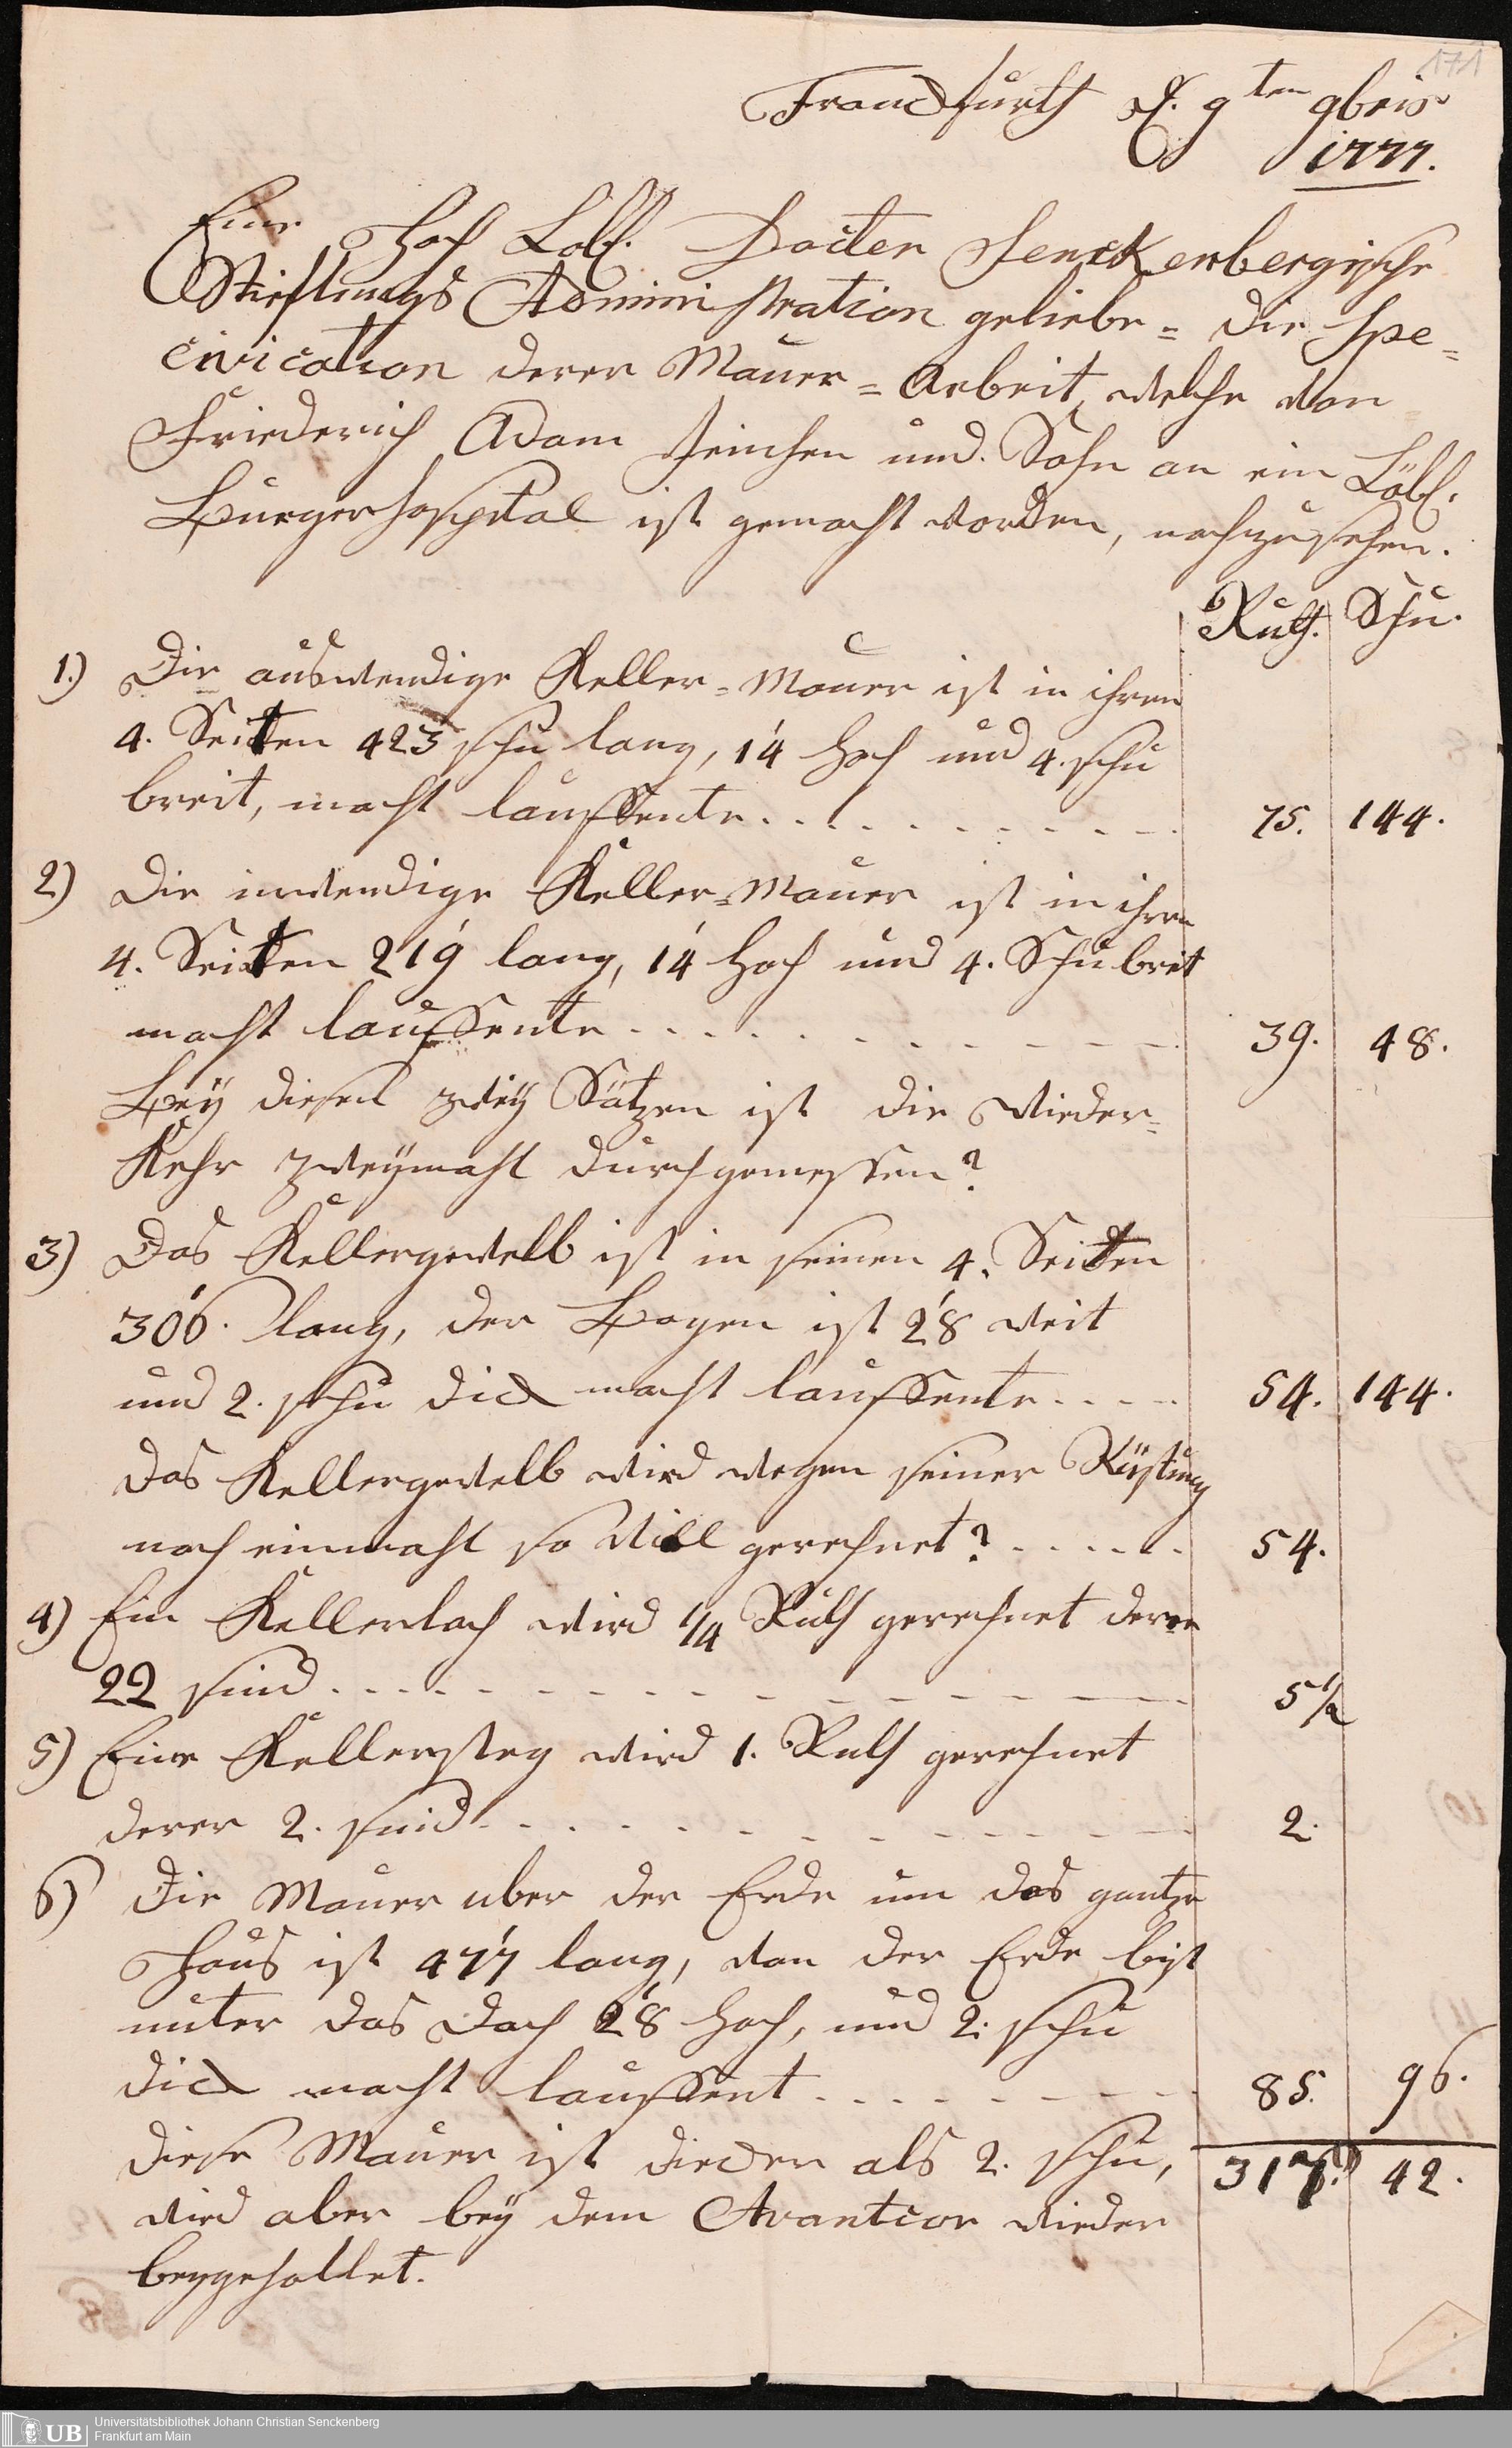 171
Franckfurth d. 9ten 9bris
1777.
Eine Hoch Löbl. Docter Senckenbergische
Stieftungs Administration geliebe = die Spe=
civication derer Mauer = Arbeit, welche von
Friederich Adam Jeinchen und Sohn an ein Löbl.
Burgerhospital ist gemacht worden, nachzusehen.
Ruth. Schu.
1.) Die auswendige Keller = Mauer ist in ihren
4. Seitten 423 schu lang, 14' hoch und 4. schu
breit, macht lauffente . . . . 75. 144.
2) Die inwendige Keller = Mauer ist in ihren
4. Seitten 219' lang, 14' hoch und 4. Schu breit
macht lauffente . . . . 39. 48.
Bey diesen zwey Sätzen ist die Wieder=
Kehr zweymahl durchgemessen?
3) Das Kellergewelb ist in seinen 4. Seitten
306'. lang, der Bogen ist 28' weit
und 2. schu dick macht lauffente . . . . 54. 144.
das Kellergewelb wird wegen seiner Rüstung
noch einmahl so viell gerechnet? . . . . 54.
4) Ein Kellerloch wird 1/4 Ruth gerechnet deren
22 sind . . . . 5 1/2
5) Eine Kellersteg wird 1. Ruth gerechnet
derer 2. sind . . . . 2.
6) Die Mauer uber der Erde um das gantze
Haus ist 477' lang, von der Erde bist
unter das Dach 28' hoch, und 2. schu
dick macht lauffent . . . . 85. 96.
diese Mauer ist diecker als 2. schu, 317. 42.
wird aber bey dem Avantcor wieder
beygehollet.
UB
Universitätsbibliothek Johann Christian Senckenberg
Frankfurt am Main